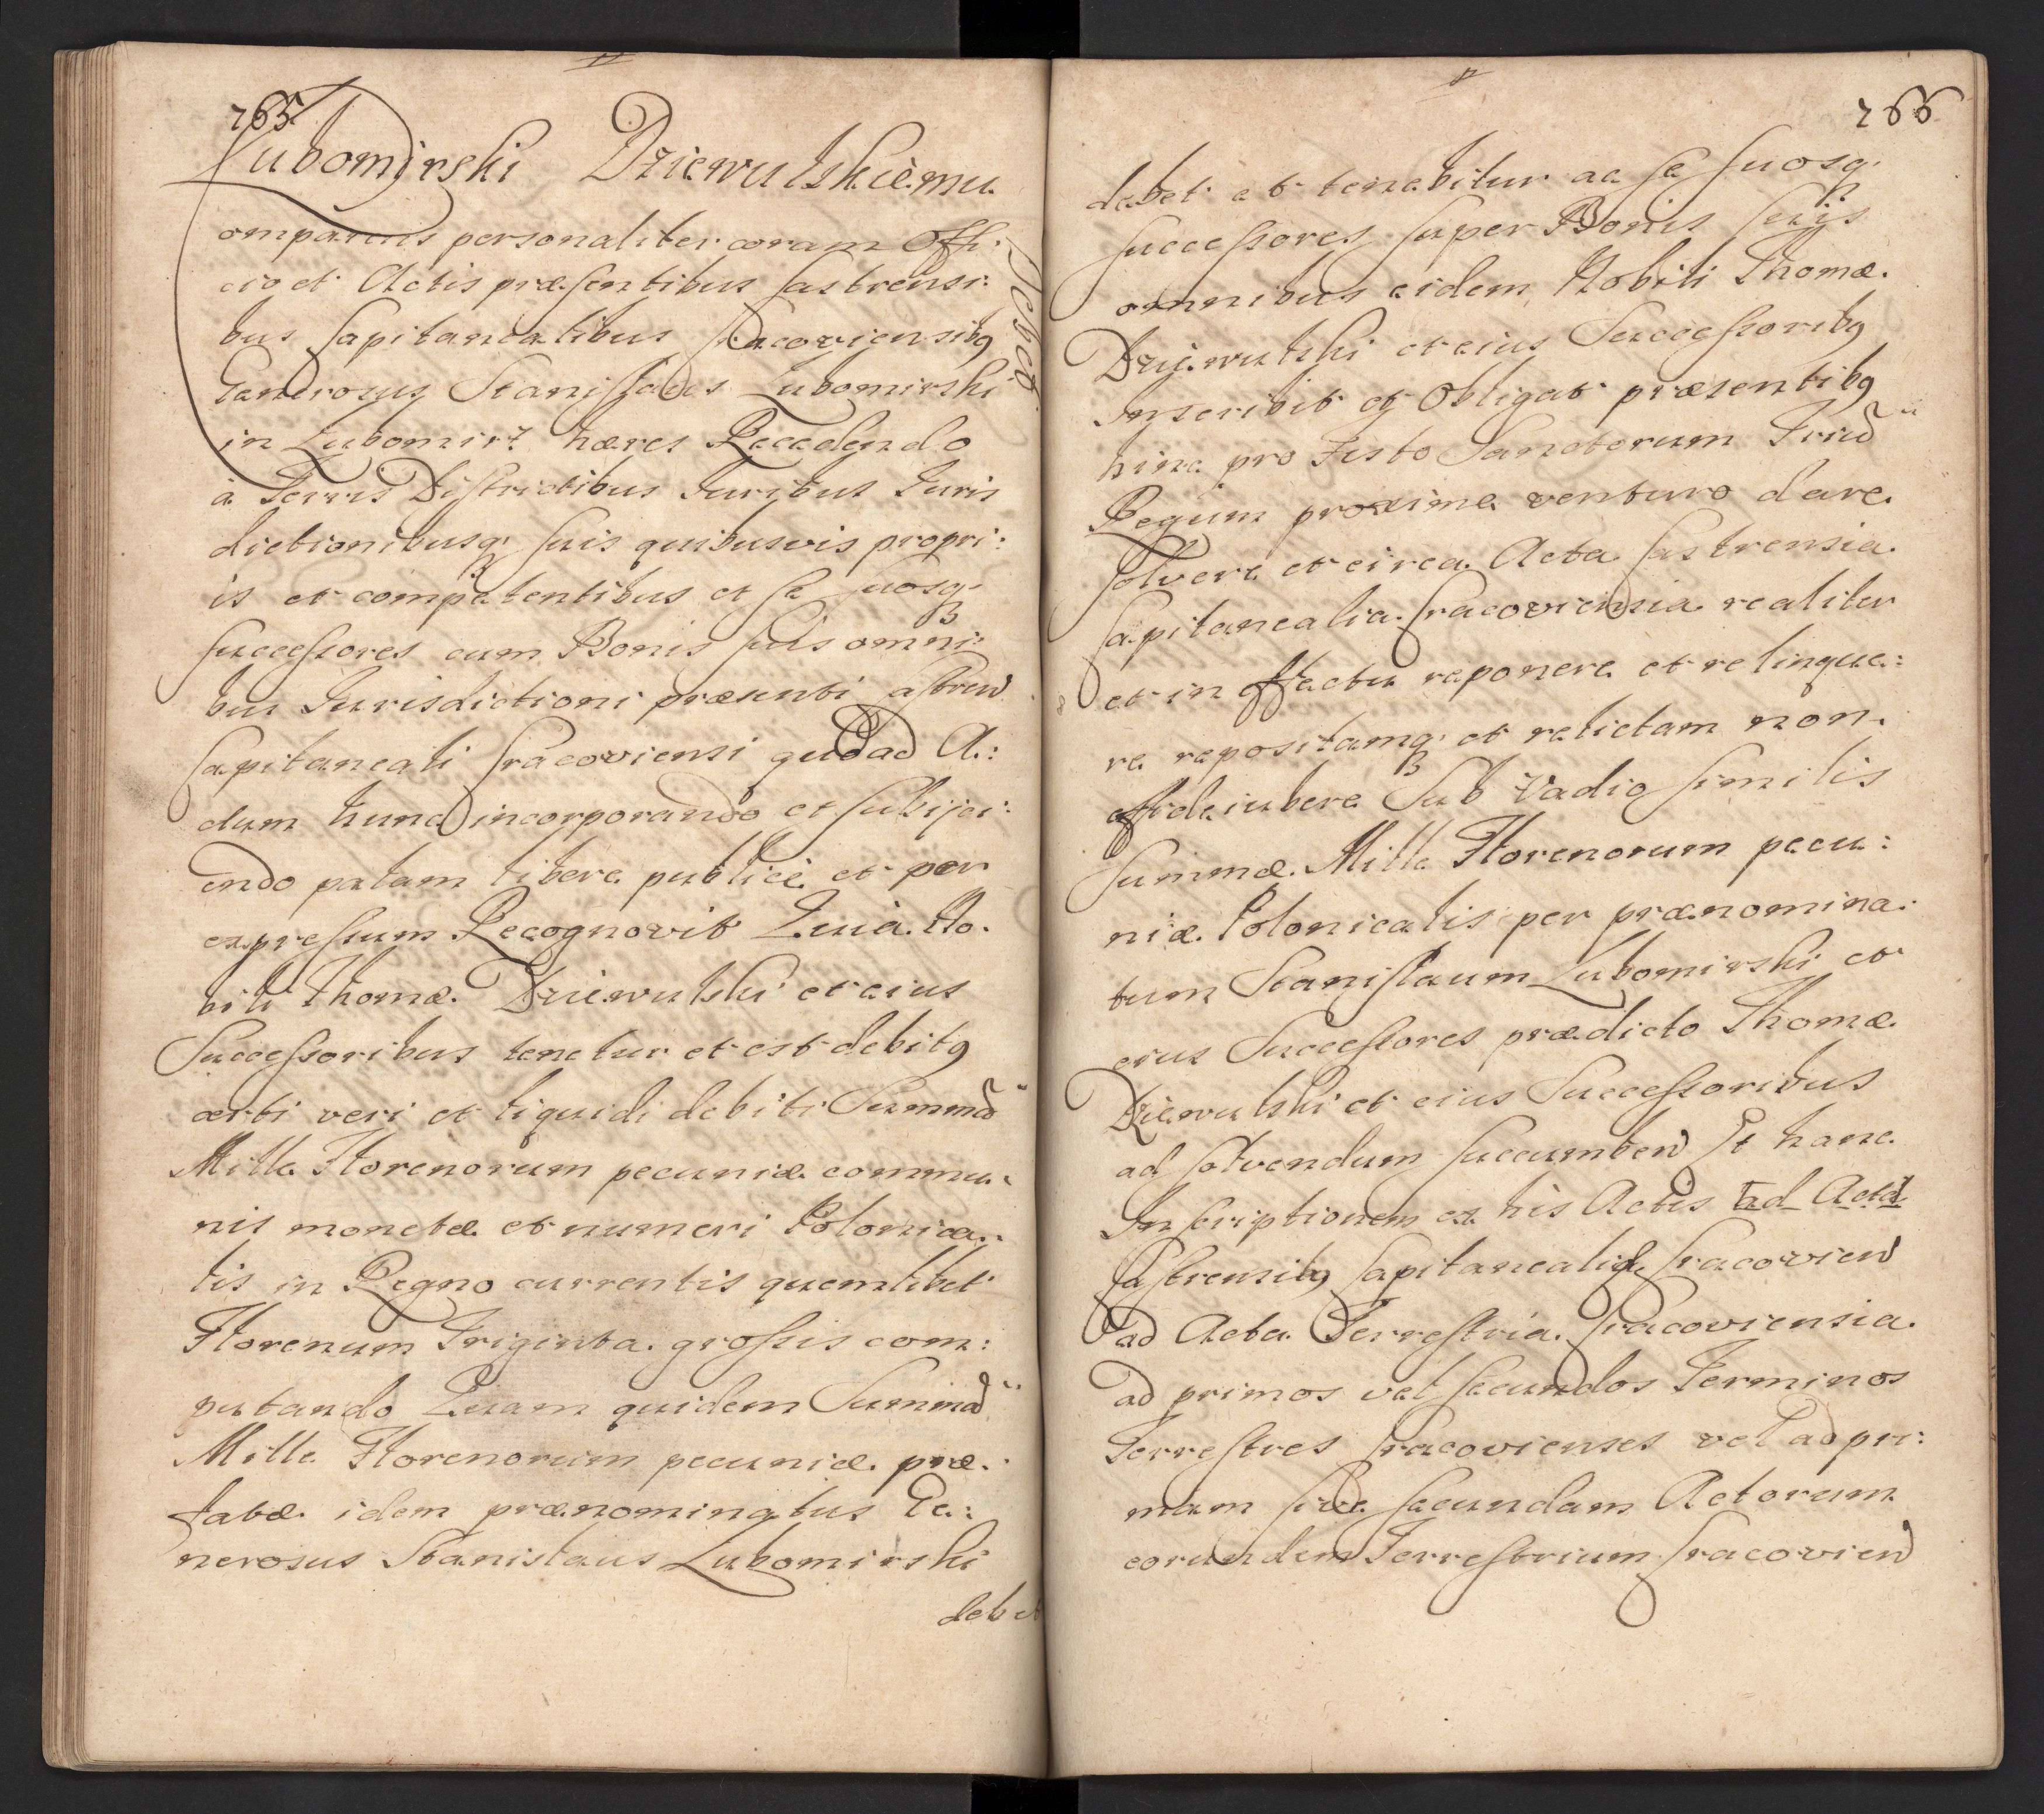 765
Lubomirski Dziewulskiemu
Debet
omparens personaliter coram Offi:
cio et Actis præsentibus Castrensi:
bus Capitanealibus Cracoviensibq
Generosus Stanislaus Lubomirski
in Lubomirz hæres Recedendo
à Terris Districtibus Juribus Juris
dictionibusq suis quibusvis propri:
is et competentibus et se suosq
successores cum Bonis suis omni:
bus Jurisdictioni præsenti astren
Capitaneali Cracoviensi quo ad A:
ctum hunc incorporando et subijci:
endo palam libere publice et per
expressum Recognovit Quia No:
bili Thomæ Dziewulski et eius
Successoribus tenetur et est debitq
certi veri et liquidi debiti Summa
Mille Florenorum pecuniæ commu:
nis monetæ et numeri Polonica:
lis in Regno currentis quemlibet
Florenum Triginta grossis com:
putando Quam quidem Summa
Mille Florenorum pecuniæ præ:
fatæ idem prænominatus Ge:
nerosus Stanislaus Lubomirski
debet
766
debet et tenebitur ac se suosq
successores super Bonis suijs
omnibus eidem Nobili Thomæ
Dziewulski et eius Successoribq
Inscribit et Obligat præsentibq
hinc pro Festo Sanctorum Triu
Regum proxime venturo dare
solvere et circa Acta Castrensia
Capitanealia Cracoviensia realiter
et in effectu reponere et relinque:
re repositamq et relictam non
affideiubere Sub Vadio similis
summæ Mille Florenorum pecu:
niæ Polonicalis per prænomina:
tum Stanislaum Lubomirski et
eius Successores prædicto Thomæ
Dziewulski et eius Successoribus
ad solvendum succumben Et hanc
Inscriptionem ex his Actis ad Acta
Castrensibq Capitanealibq Cracovien
ad Acta Terrestria Cracoviensia
ad primos vel secundos Terminos
Terrestres Cracovienses vel ad pri:
mam sive secundam Actorum
eorundem Terrestrium Cracovien